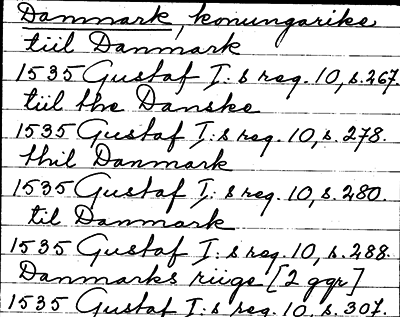 Danmark, konungarike
tiil Danmark
1535 Gustaf I:s reg. 10, s. 267.
tiil the Danske
1535 Gustaf I:s reg. 10, s. 278.
thil Danmark
1535 Gustaf I:s reg. 10, s. 280.
til Danmark
1535 Gustaf I:s reg. 10, s. 288.
Danmarks riige [2 ggr]
1535 Gustaf I:s reg. 10, s. 307.